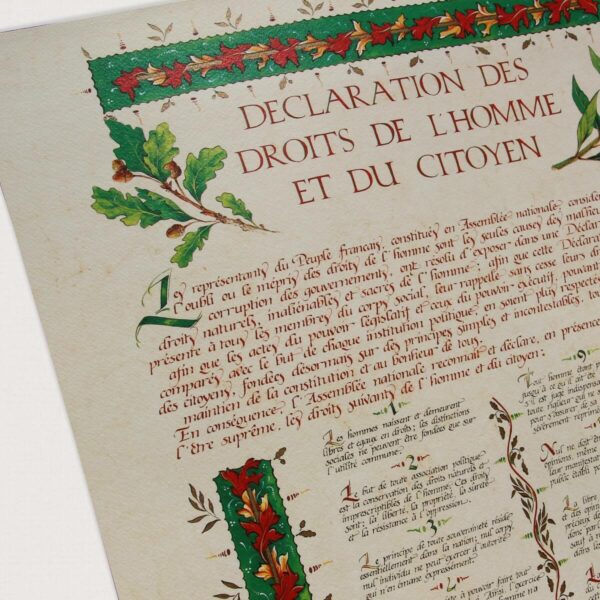 DECLARATION DES
DROITS DE L'HOMME
ET DU CITOYEN
Les représentants du Peuple français, constitués en Assemblée nationale, considér
l'oubli ou le mépris des droits de l'homme sont les seules causes des malheu
corruption des gouvernements, ont résolu d'exposer dans une Déclara
droits naturels, inaliénables et sacrés de l'homme; afin que cette Déclara
présente à tous les membres du corps social, leur rappelle sans cesse leurs dr
afin que les actes du pouvoir législatif et ceux du pouvoir exécutif, pouvant
comparés avec le but de chaque institution politique, en soient plus respectés
des citoyens, fondées désormais sur des principes simples et incontestables, tou
maintien de la constitution et au bonheur de tous.
En conséquence, l'Assemblée nationale reconnait et déclare, en présence
l'être suprême, les droits suivants de l'homme et du citoyen:
1
Les hommes naissent et demeurent
libres et égaux en droits; les distinctions
sociales ne peuvent être fondées que sur
l'utilité commune.
2
Le but de toute association politique
est la conservation des droits naturels et
imprescriptibles de l'homme. Ces droits
sont: la liberté, la propriété, la sûreté
et la résistance à l'oppression.
3
Le principe de toute souveraineté réside
essentiellement dans la nation; nul corps,
nul individu ne peut exercer d'autorité
qui n'en émane expressément.
4
à pouvoir faire tout
9
Tout homme étant p
jusqu'à ce qu'il ait été
s'il est jugé indispensa
toute rigueur qui ne s
pour s'assurer de sa
sévèrement réprimé
Nul ne doit êt
opinions, même
leur manifestat
public établi p
La libre
et des opini